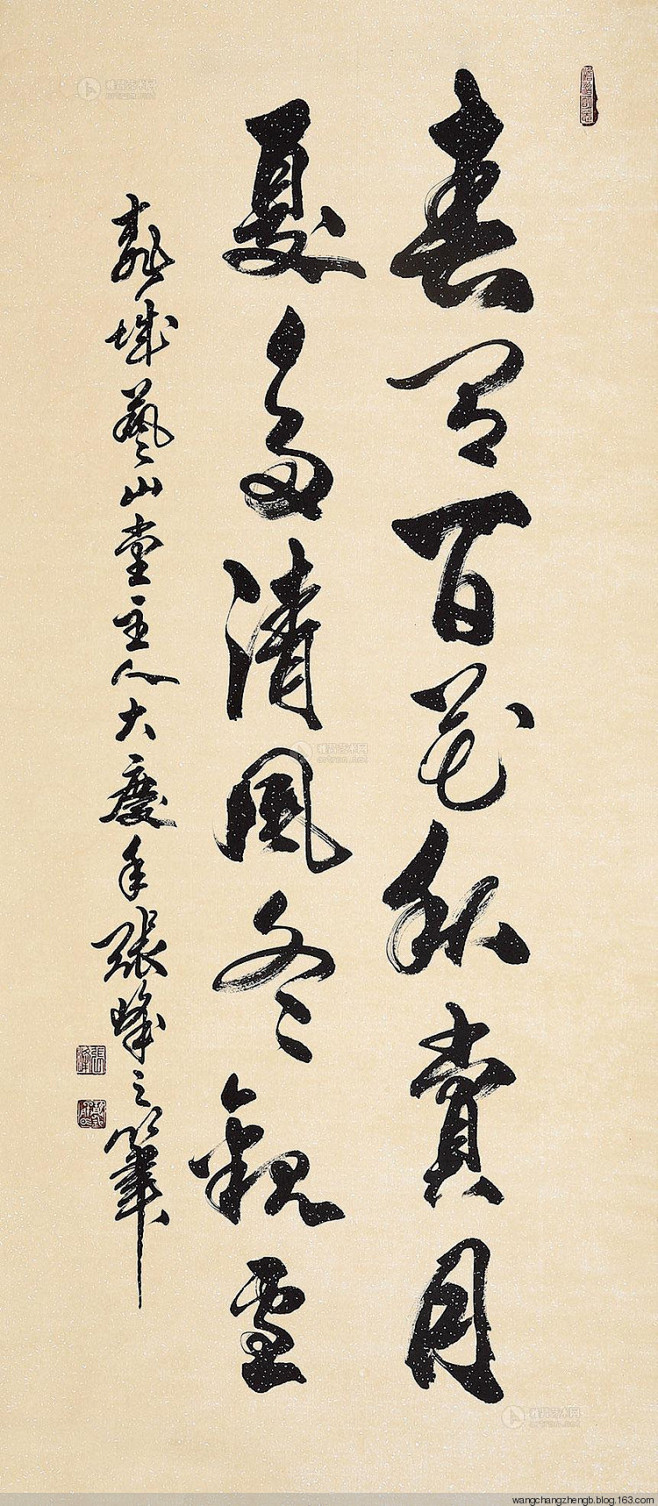 春有百花秋賞月
夏多清風冬觀雪
龍城藝山堂主人大慶年張峰之筆
wangchangzhengb.blog.163.com